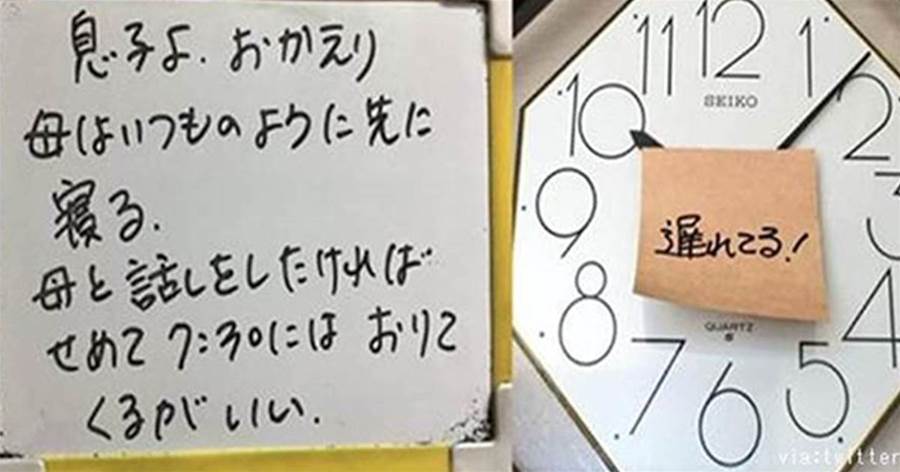 息子よ. おかえり
母はいつものように先に
寝る.
母と話しをしたければ
せめて 7:30には おりて
くるがいい.
11 12 1
SEIKO
10 2
9 3
遅れてる!
8 4
QUARTZ
7 6 5
via:twitter